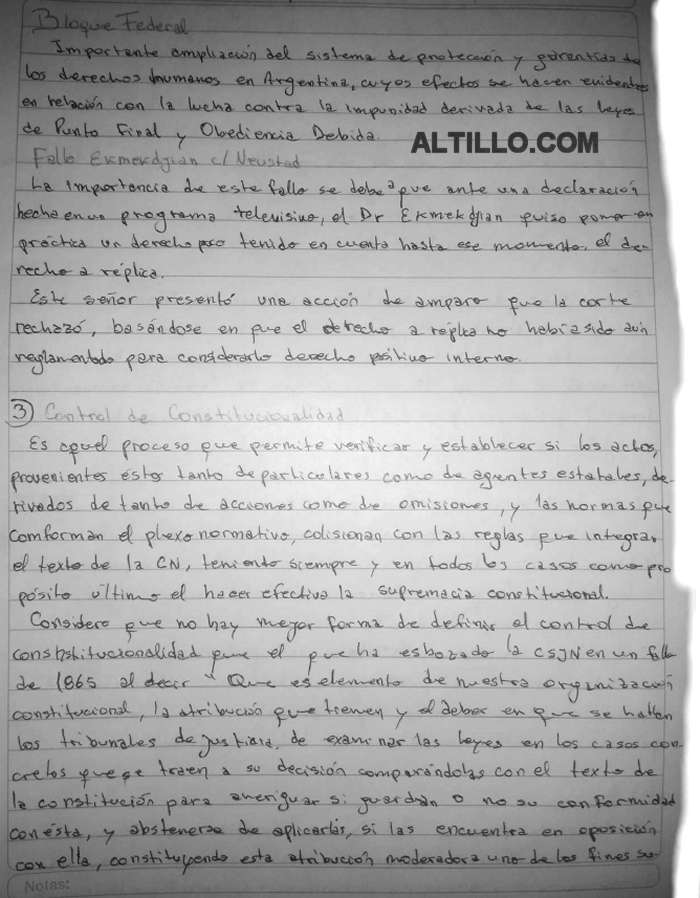 Bloque Federal
Importante ampliación del sistema de protección y garantías de
los derechos humanos en Argentina, cuyos efectos se hacen evidentes
en relación con la lucha contra la impunidad derivada de las leyes
de Punto Final y Obediencia Debida.
ALTILLO.COM
Fallo Ekmekdjian c/ Neustad
La importancia de este fallo se debe a que ante una declaración
hecha en un programa televisivo, el Dr Ekmekdjian quiso poner en
práctica un derecho poco tenido en cuenta hasta ese momento, el de-
recho a réplica.
Este señor presentó una acción de amparo que la corte
rechazó, basándose en que el derecho a replica no había sido aún
reglamentado para considerarlo derecho positivo interno.
3 Control de Constitucionalidad
Es aquel proceso que permite verificar y establecer si los actos,
provenientes éstos tanto de particulares como de agentes estatales, de-
rivados de tanto de acciones como de omisiones, y las normas que
comforman el plexo normativo, colisionan con las reglas que integran
el texto de la CN, teniendo siempre y en todos los casos como pro
pósito último el hacer efectiva la supremacía constitucional.
Considero que no hay mejor forma de definir el control de
constistitucionalidad que el que ha esbozado la CSJN en un fallo
de 1865 al decir " Que es elemento de nuestra organización
constitucional, la atribución que tienen y el deber en que se hallan
los tribunales de justicia, de examinar las leyes en los casos con-
cretos que se traen a su decisión comparándolas con el texto de
la constitución para averiguar si guardan o no su conformidad
con ésta, y abstenerse de aplicarlas, si las encuentra en oposición
con ella, constituyendo esta atribución moderadora uno de los fines su-
Notas: